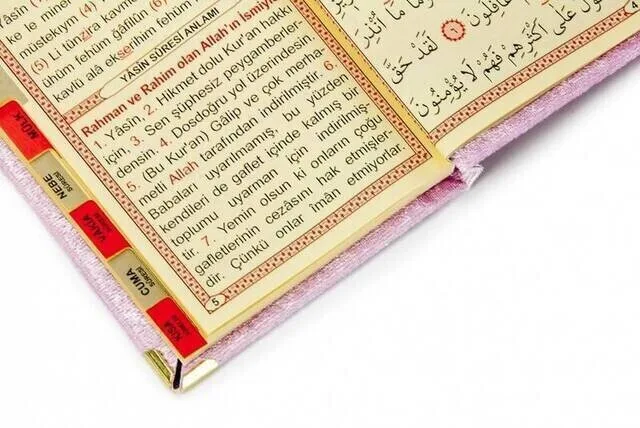 Yâsîn
ke le mine
müstekym (4)
(5) Li tünzira
ühüm fehüm ğâfilûn (6)
kavlü alâ ekserihim fehüm
YÂSÎN SÛRESİ ANLAMI
Rahman ve Rahim olan Allah'ın ismiyle
1. Yâsîn, 2. Hikmet dolu Kur'an hakkı
için, 3. Sen şüphesiz peygamberler-
densin. 4. Dosdoğru yol üzerindesin.
5. (Bu Kur'an) Gâlip ve çok merha-
metli Allah tarafından indirilmiştir. 6.
Babaları uyarılmamış, bu yüzden
kendileri de gaflet içinde kalmış bir
toplumu uyarman için indirilmiş-
tir. 7. Yemin olsun ki onların çoğu
gafletlerinin cezasını hak etmişler-
dir. Çünkü onlar îmân etmiyorlar.
5
مَا أُنْذِرَ
غَافِلُونَ ٦ لَقَدْ حَقَّ
عَلَى أَكْثَرِهِمْ فَهُمْ لَا يُؤْمِنُونَ
MÜLK
NEBE
SÛRESİ
VÂKIA
SÛRESİ
CUMA
SÛRESİ
KISA
SÛRELER